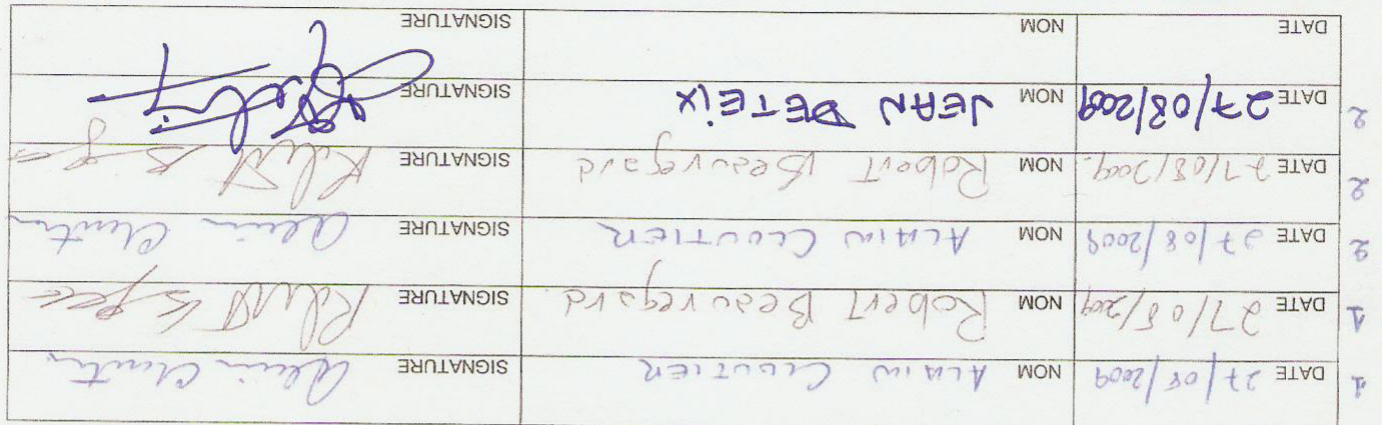 1 DATE 27/08/2009 NOM ALAIN CLOUTIER SIGNATURE Alain Cloutier
1 DATE 27/08/2009 NOM Robert Beauregard SIGNATURE
2 DATE 27/08/2009 NOM ALAIN CLOUTIER SIGNATURE Alain Cloutier
2 DATE 27/08/2009. NOM Robert Beauregard SIGNATURE
2 DATE 27/08/2009 NOM JEAN DETEIX SIGNATURE
DATE NOM SIGNATURE